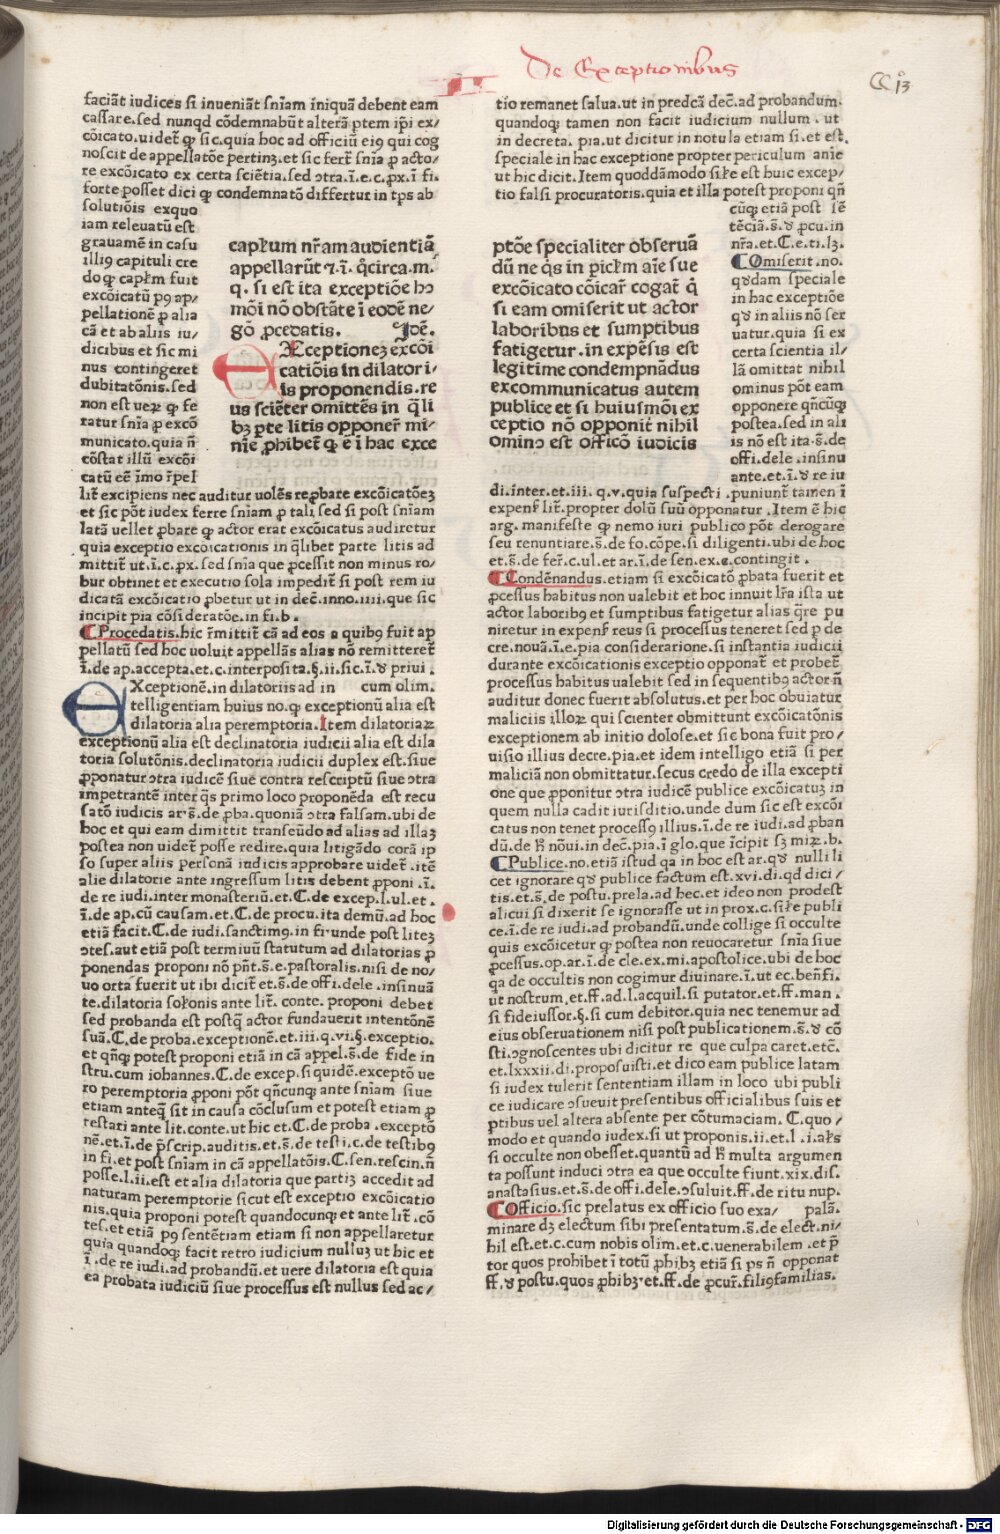 II
De Exceptionibus
CC 13
faciāt iudices si inueniāt sniam iniquā debent eam
cassare.sed nunqd cōdemnabūt alterā ptem ip̄i ex/
cōicato.uidet̄ ꝙ sic.quia hoc ad officiū eiꝯ qui cog
noscit de appellatōe pertinꝫ.et sic fert̄ snīa ꝓ acto/
re excōicato ex certa sciētia.sed ɔtra.ī.e.c.ꝓx.ī fi.
forte posset dici ꝙ condemnatō differtur in tp̄s ab
solutiōis exquo
iam releuatū est
grauamē in casu
illiꝯ capituli cre
do ꝙ capl̄m fuit
excōicatū pꝯ ap/
pellationē ꝓ alia
cā et ab aliis iu/
dicibus et sic mi
nus contingeret
dubitatōnis.sed
non est ueꝝ ꝙ fe
ratur snīa ꝓ excō
municato.quia n̄
cōstat illū excōi
catū eē īmo r̄pel
lit̄ excipiens nec auditur uolēs reꝓbare excōicatōeꝫ
et sic pōt iudex ferre sniam ꝓ tali sed si post sniam
latā uellet ꝓbare ꝙ actor erat excōicatus audiretur
quia exceptio excōicationis in q̄libet parte litis ad
mittit̄ ut.ī.c.ꝓx.sed snīa que ꝓcessit non minus ro/
bur obtinet et executio sola impedit̄ si post rem iu
dicatā excōicatio ꝓbetur ut in dec̄.inno.iiii.que sic
incipit pia cōsideratōe.in fi.b.
¶ Procedatis.hic r̄mittit̄ cā ad eos a quibꝯ fuit ap
pellatū sed hoc uoluit appellās alias nō remitteret̄
ī.de ap.accepta.et.c.interposita.§.ii.sic.ī.ꝺ priui.
EXceptionē.in dilatoriis ad in cum olim.
telligentiam huius no.ꝙ exceptionū alia est
dilatoria alia peremptoria.Item dilatoriaꝝ
exceptionū alia est declinatoria iudicii alia est dila
toria solutōnis.declinatoria iudicii duplex est.siue
ꝓponatur ɔtra iudicē siue contra rescriptū siue ɔtra
impetrantē inter q̄s primo loco proponēda est recu
satō iudicis ar̄.s̄.de ꝓba.quoniā ɔtra falsam.ubi de
hoc et qui eam dimittit transeūdo ad alias ad illaꝫ
postea non uidet̄ posse redire.quia litigādo corā ip
so super aliis personā iudicis approbare uidet̄.itē
alie dilatorie ante ingressum litis debent ꝓponi.ī.
de re iudi.inter monasteriū.et.C.de excep.l.ul.et.
ī.de ap.cū causam.et.C.de procu.ita demū.ad hoc
etiā facit.C.de iudi.sanctimꝯ.in fi.unde post liteꝫ
ɔtes.aut etiā post termiuū statutum ad dilatorias ꝓ
ponendas proponi nō pn̄t.s̄.e.pastoralis.nisi de no/
uo orta fuerit ut ibi dicit̄ et.s̄.de offi.dele.insinuā
te.dilatoria solōnis ante lit̄.conte.proponi debet
sed probanda est postꝙ̄ actor fundauerit intentōnē
suā.C.de proba.exceptionē.et.iii.q.vi.§.exceptio.
et qn̄qꝫ potest proponi etiā in cā appel.s̄.de fide in
stru.cum iohannes.C.de excep.si quidē.exceptō ue
ro peremptoria ꝓponi pōt qn̄cunqꝫ ante sniam siue
etiam anteꝙ̄ sit in causa cōclusum et potest etiam ꝓ
testari ante lit.conte.ut hic et.C.de proba.exceptō
nē.et.ī.de p̄scrip.auditis.et.s̄.de testi.c.de testibꝯ
in fi.et post sniam in cā appellatōis.C.sen.rescin.n̄
posse.l.ii.est et alia dilatoria que partiꝫ accedit ad
naturam peremptorie sicut est exceptio excōicatio
nis.quia proponi potest quandocunqꝫ et ante lit̄.cō
tes.et etiā pꝯ sentētiam etiam si non appellaretur
quia quandoqꝫ facit retro iudicium nulluꝫ ut hic et
ī.de re iudi.ad probandū.et uere dilatoria est quia
ea probata iudiciū siue processus est nullus sed ac/
capl̄um nr̄am audientiā
appellarūt ⁊.ī. q̄circa.m.
q. si est ita exceptiōe hɔ
mōi nō obstāte ī eodē ne/
gō ꝓcedatis. Idē.
EXceptioneꝫ excōi
catiōis in dilatori/
is proponendis.re
us sciēter omittēs in q̄li
bꝫ pte litis opponer̄ mi/
nīe ꝓhibet̄ ꝙ̄ e ī hac exce
ptōe specialiter obseruā
dū ne q̄s in pic̄lm aīe sue
excōicato cōicar̄ cogat̄ q̄
si eam omiserit ut actor
laboribus et sumptibus
fatigetur.in expēsis est
legitime condempnādus
excommunicatus autem
publice et si huiusmōi ex
ceptio nō opponit̄ nihil
ominꝯ est officō iudicis
tio remanet salua.ut in predcā dec̄.ad probandum.
quandoqꝫ tamen non facit iudicium nullum.ut
in decreta.pia.ut dicitur in notula etiam si.et est.
speciale in hac exceptione propter periculum anīe
ut hic dicit.Item quoddāmodo sil̄e est huic excep/
tio falsi procuratoris.quia et illa potest proponi qn̄
cūqꝫ etiā post sē
tēciā.s̄.ꝺ ꝓcu.in
nr̄a.et.C.e.ti.lꝫ.
¶ Omiserit.no.
qꝺdam speciale
in hac exceptiōe
qꝺ in aliis nō ser
uatur.quia si ex
certa scientia il/
lā omittat nihil
ominus pōt eam
opponere qn̄cūqꝫ
postea.sed in ali
is nō est ita.s̄.de
offi.dele.insinu
ante.et.ī.ꝺ re iu
di.inter.et.iii.q.v.quia suspecti.puniunt̄ tamen ī
expenſ lit̄.propter dolū suū opponatur.Item ē hic
arg.manifeste ꝙ nemo iuri publico pōt derogare
seu renuntiare.s̄.de fo.cōpe.si diligenti.ubi de hoc
et.s̄.de fer̄.c.ul.et ar.ī.de sen.ex.e.contingit.
¶ Condēnandus.etiam si excōicatō ꝓbata fuerit et
ꝓcessus habitus non ualebit et hoc innuit lr̄a ista ut
actor laboribꝯ et sumptibus fatigetur alias q̄re pu
niretur in expenſ reus si processus teneret sed p de
cre.nouā.ī.e.pia considerarione.si instantia iudicii
durante excōicationis exceptio opponat̄ et probet̄
processus habitus ualebit sed in sequentibꝯ actor n̄
auditur donec fuerit absolutus.et per hoc obuiatur
maliciis illoꝝ qui scienter obmittunt excōicatōnis
exceptionem ab initio dolose.et sic bona fuit pro/
uisio illius decre.pia.et idem intelligo etiā si per
maliciā non obmittatur.secus credo de illa excepti
one que ꝓponitur ɔtra iudicē publice excōicatuꝫ in
quem nulla cadit iurisditio.unde dum sic est excōi
catus non tenet processꝯ illius.ī.de re iudi.ad ꝓban
dū.de h̄ nōui.in dec̄.pia.ī glo.que īcipit sꝫ miꝝ.b.
¶ Publice.no.etiā istud qa in hoc est ar.qꝺ nulli li
cet ignorare qꝺ publice factum est.xvi.di.qd dici/
tis.et.s̄.de postu.prela.ad hec.et ideo non prodest
alicui si dixerit se ignorasse ut in prox.c.sil̄e publi
ce.ī.de re iudi.ad probandū.unde collige si occulte
quis excōicetur ꝙ postea non reuocaretur snīa siue
ꝓcessus.op.ar.ī.de cle.ex.mi.apostolice.ubi de hoc
qa de occultis non cogimur diuinare.ī.ut ec.ben̄fi.
ut nostrum.et.ff.ad.l.acquil.si putator.et.ff.man.
si fideiussor.§.si cum debitor.quia nec tenemur ad
eius obseruationem nisi post publicationem.s̄.ꝺ cō
sti.ɔgnoscentes ubi dicitur re que culpa caret.etc̄.
et.lxxxii.di.proposuisti.et dico eam publice latam
si iudex tulerit sententiam illam in loco ubi publi
ce iudicare ɔsueuit presentibus officialibus suis et
ptibus uel altera absente per cōtumaciam.C.quo/
modo et quando iudex.si ut proponis.ii.et.l.i.al̄s
si occulte non obesset.quantū ad h̄ multa argumen
ta possunt induci ɔtra ea que occulte fiunt.xix.dis.
anastasius.et.s̄.de offi.dele.ɔsuluit.ff.de ritu nup.
¶ Officio.sic prelatus ex officio suo exa/ palā.
minare dꝫ electum sibi presentatum.s̄.de elect.ni/
hil est.et.c.cum nobis olim.et.c.uenerabilem.et p̄
tor quos prohibet ī totū ꝓhibꝫ etiā si ps n̄ opponat
ff.ꝺ postu.quos ꝓhibꝫ.et.ff.de ꝓcur̄.filiꝯfamilias.
Digitalisierung gefördert durch die Deutsche Forschungsgemeinschaft - DFG